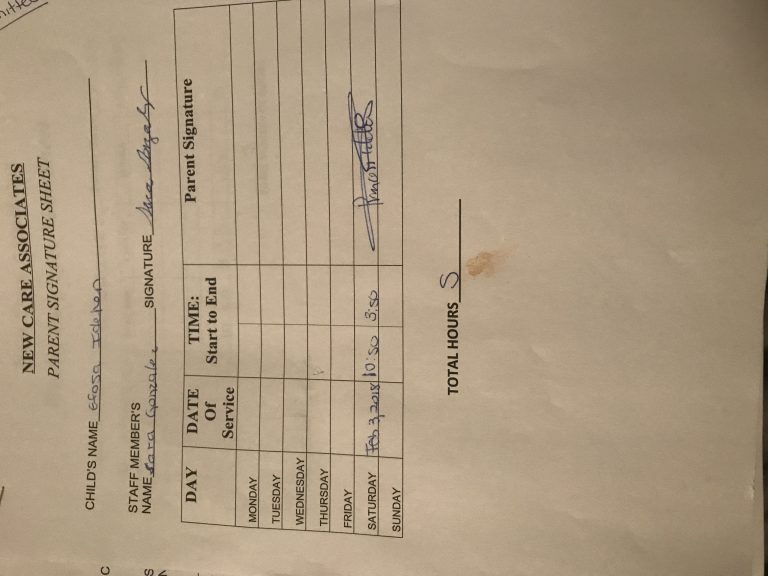 NEW CARE ASSOCIATES
PARENT SIGNATURE SHEET
CHILD'S NAME Efosa
STAFF MEMBER'S
NAME Sara Gonzalez SIGNATURE Sara Gonzalez
DAY DATE Of Service TIME: Start to End Parent Signature
MONDAY
TUESDAY
WEDNESDAY
THURSDAY
FRIDAY
SATURDAY Feb 3, 2018 10:50 3:50
SUNDAY
TOTAL HOURS 5